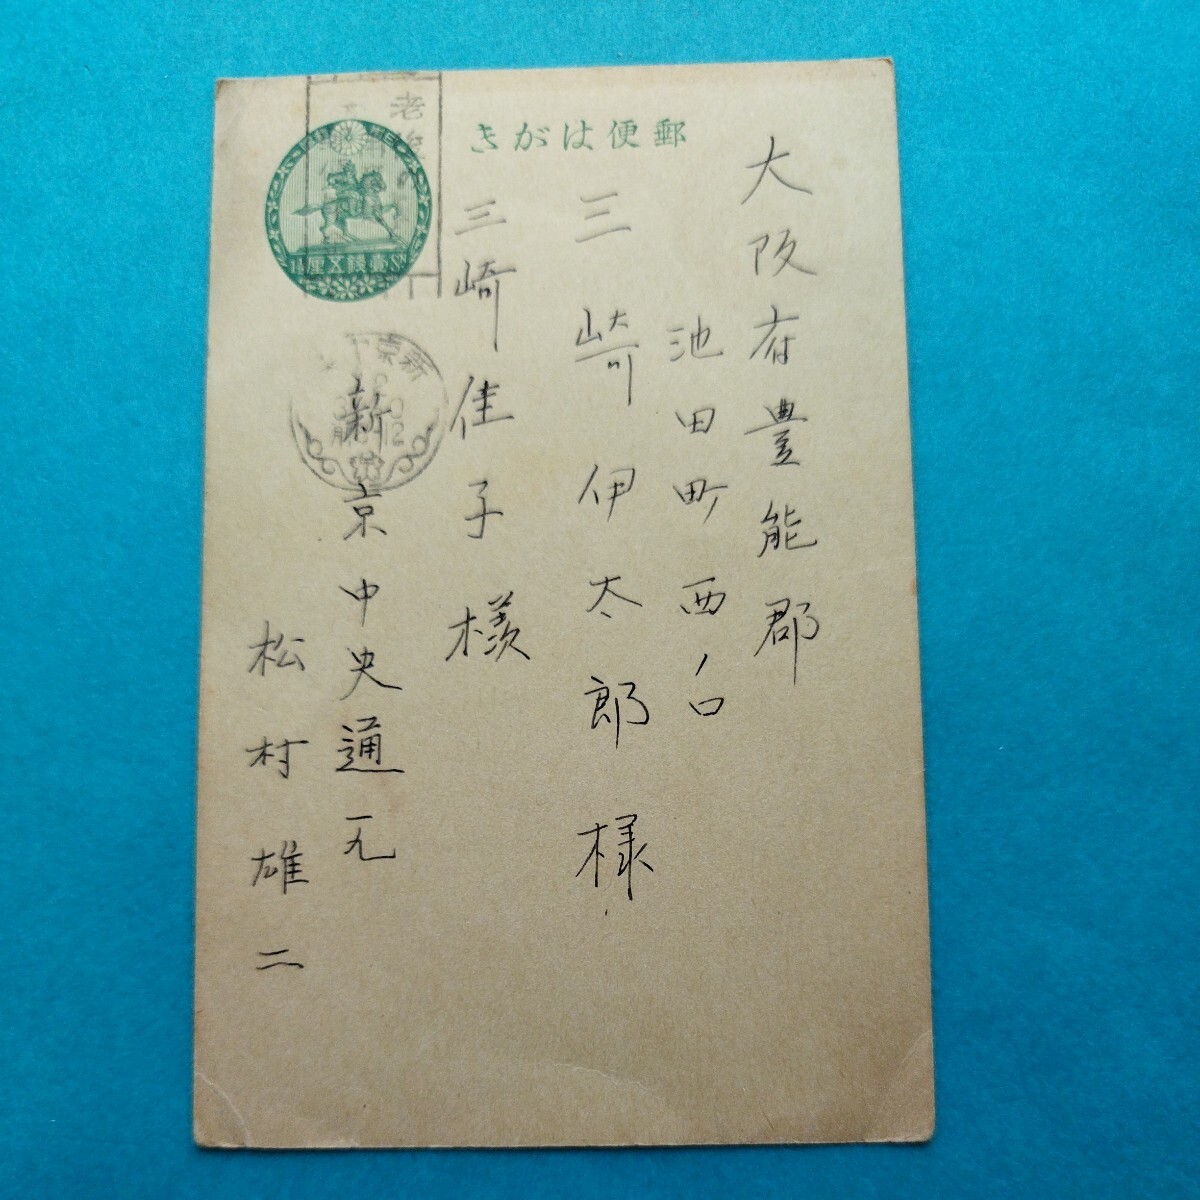 きがは便郵
大阪府豊能郡
池田町西ノ口
三崎伊太郎様
三崎佳子様
新京中央通一九
松村雄二
壹錢五厘
新京